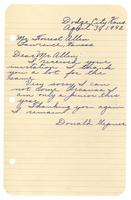 Dodge City, Kans.
April 30, 1942
Mr. Forrest Allen
Lawrence, Kansas
Dear Mr. Allen,
I received your
invitation. I thank
you a lot for the
same.
Very sorry I can
not come because I
am only a junior this
year.
Thanking you again
I remain
Donald